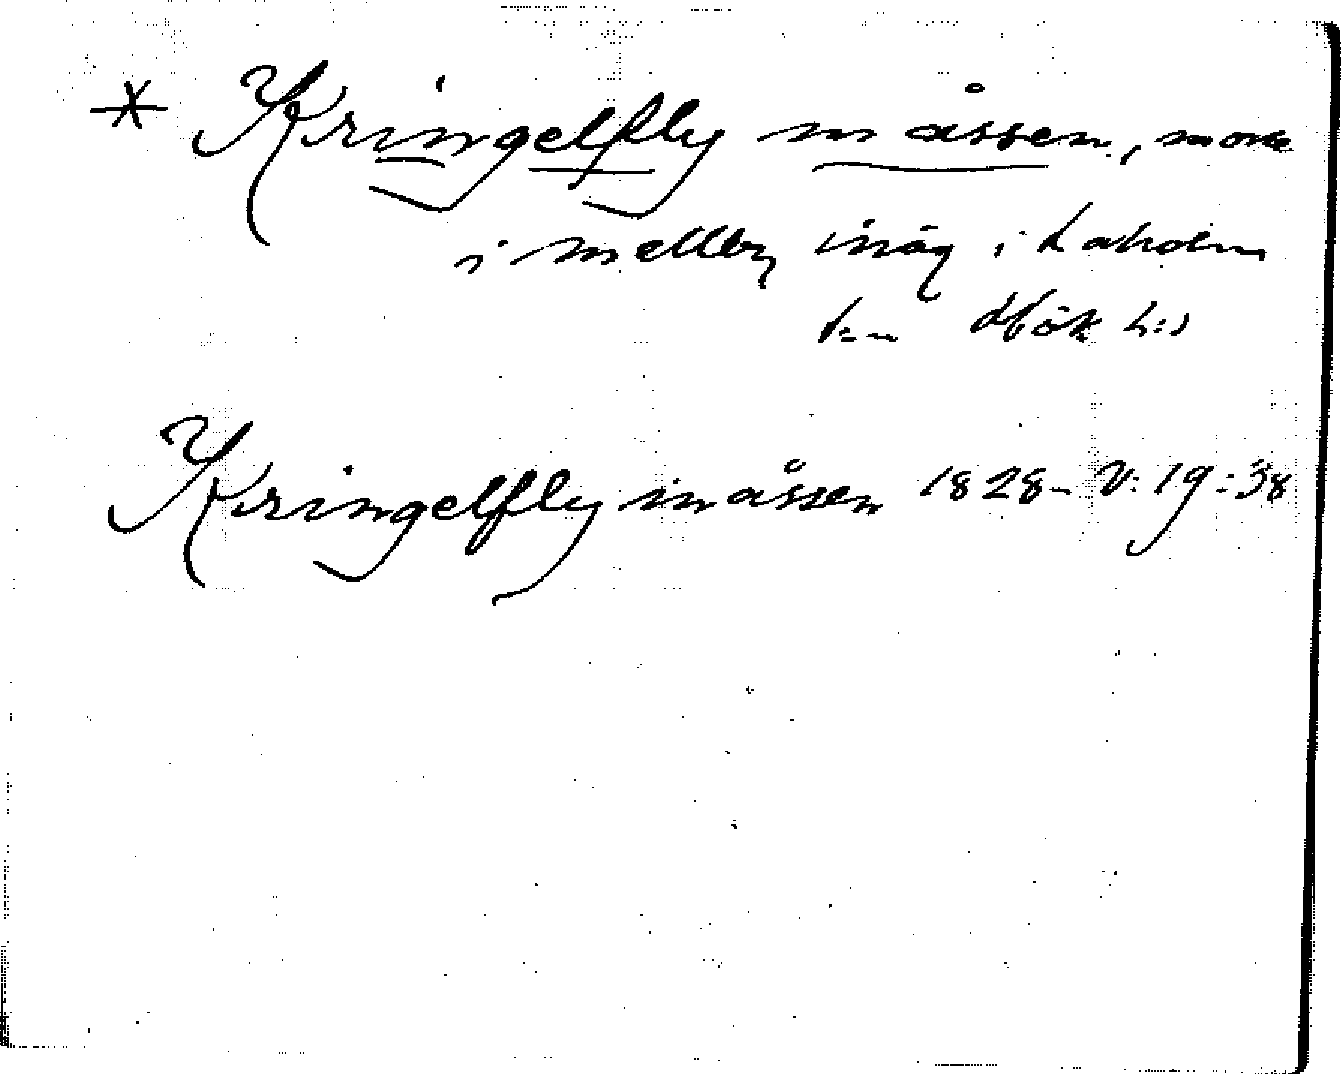 * Kringelfly måssen, mosse
i mellby inäg i Laholm
Hök h:d
Kringelflymåssen 1828 - V: 19: 38